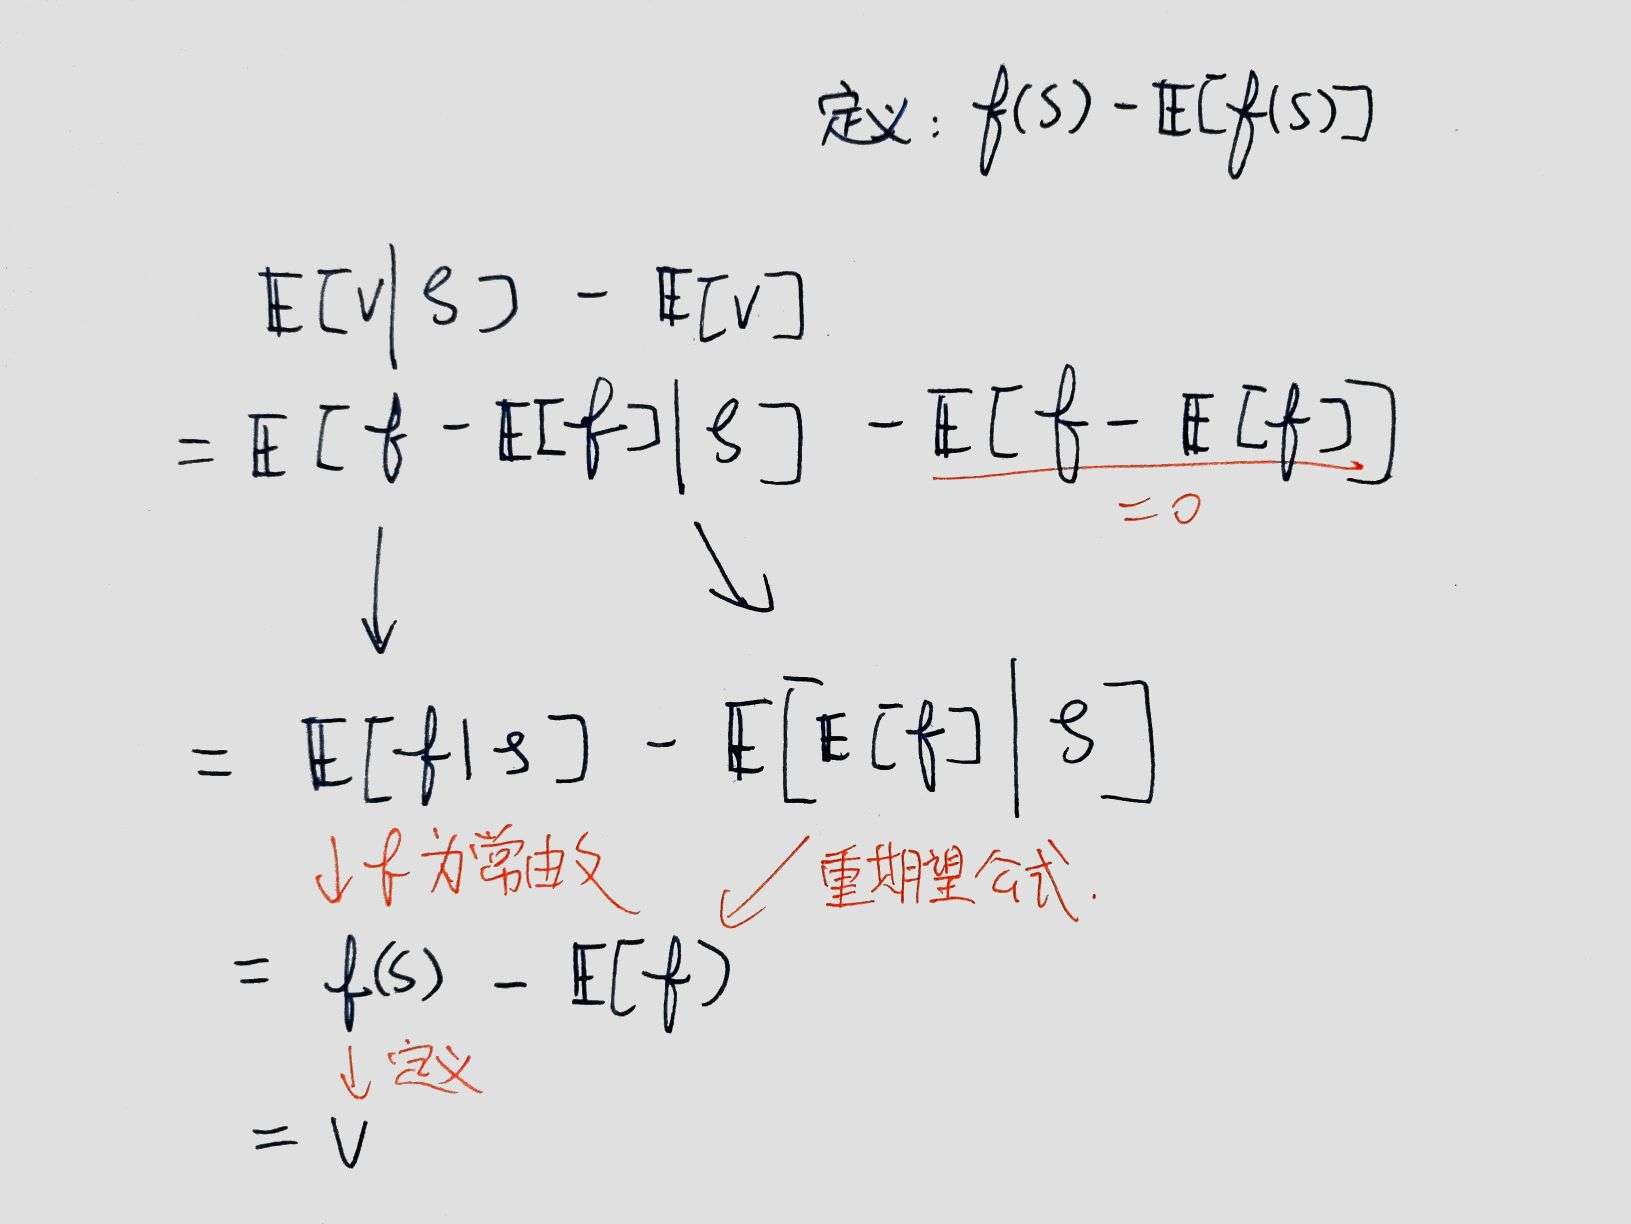 定义: f(S) - E[f(S)]
E[V|S] - E[V]
= E[f - E[f]|S] - E[f - E[f]]
= 0
= E[f|S] - E[E[f]|S]
↓ f 为常由义 ↙ 重期望公式.
= f(S) - E[f)
↓ 定义
= V